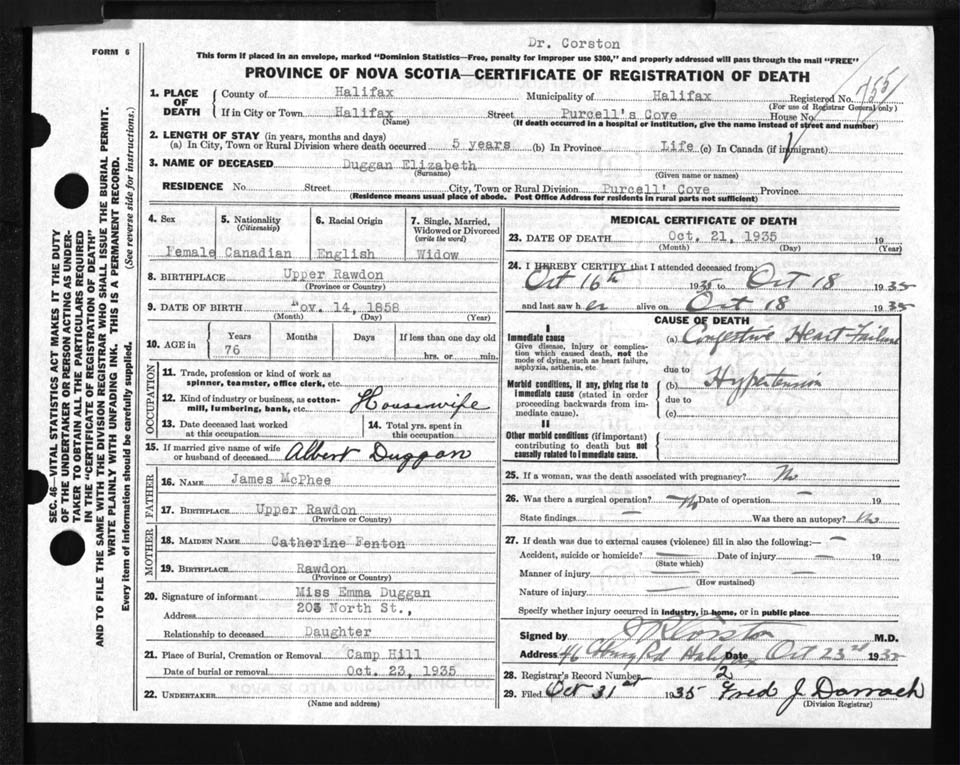 Dr. Corston
FORM 6
This form if placed in an envelope, marked "Dominion Statistics—Free, penalty for improper use $300," and properly addressed will pass through the mail "FREE"
PROVINCE OF NOVA SCOTIA—CERTIFICATE OF REGISTRATION OF DEATH
SEC. 46—VITAL STATISTICS ACT MAKES IT THE DUTY
OF THE UNDERTAKER OR PERSON ACTING AS UNDER-
TAKER TO OBTAIN ALL THE PARTICULARS REQUIRED
IN THE "CERTIFICATE OF REGISTRATION OF DEATH"
AND TO FILE THE SAME WITH THE DIVISION REGISTRAR WHO SHALL ISSUE THE BURIAL PERMIT.
WRITE PLAINLY WITH UNFADING INK. THIS IS A PERMANENT RECORD.
Every item of Information should be carefully supplied. (See reverse side for instructions.)
1. PLACE OF DEATH
County of Halifax Municipality of Halifax Registered No. 755
(For use of Registrar General only)
If in City or Town Halifax Street Purcell's Cove House No.
(Name) (If death occurred in a hospital or institution, give the name instead of street and number)
2. LENGTH OF STAY (in years, months and days)
(a) In City, Town or Rural Division where death occurred 5 years (b) In Province Life (c) In Canada (if immigrant)
3. NAME OF DECEASED Duggan Elizabeth
(Surname) (Given name or names)
RESIDENCE No. Street City, Town or Rural Division Purcell' Cove Province
(Residence means usual place of abode. Post Office Address for residents in rural parts not sufficient)
4. Sex
Female
5. Nationality
(Citizenship)
Canadian
6. Racial Origin
English
7. Single, Married,
Widowed or Divorced
(write the word)
Widow
8. BIRTHPLACE Upper Rawdon
(Province or Country)
9. DATE OF BIRTH Nov. 14, 1858
(Month) (Day) (Year)
10. AGE in
Years Months Days If less than one day old
76 hrs. or min.
OCCUPATION
11. Trade, profession or kind of work as
spinner, teamster, office clerk, etc.
12. Kind of industry or business, as cotton-
mill, lumbering, bank, etc. Housewife
13. Date deceased last worked
at this occupation
14. Total yrs. spent in
this occupation
15. If married give name of wife
or husband of deceased Albert Duggan
FATHER
16. NAME James McPhee
17. BIRTHPLACE Upper Rawdon
(Province or Country)
MOTHER
18. MAIDEN NAME Catherine Fenton
19. BIRTHPLACE Rawdon
(Province or Country)
20. Signature of informant Miss Emma Duggan
Address 203 North St.,
Relationship to deceased Daughter
21. Place of Burial, Cremation or Removal Camp Hill
Date of burial or removal Oct. 23, 1935
22. UNDERTAKER
(Name and address)
MEDICAL CERTIFICATE OF DEATH
23. DATE OF DEATH Oct. 21, 1935 19
(Month) (Day) (Year)
24. I HEREBY CERTIFY that I attended deceased from
Oct 16th 1935 to Oct 18 1935
and last saw her alive on Oct 18 1935
CAUSE OF DEATH
I
Immediate cause
Give disease, injury or complica-
tion which caused death, not the
mode of dying, such as heart failure,
asphyxia, asthenia, etc.
(a) Congestive Heart Failure
due to
Morbid conditions, if any, giving rise to
immediate cause (stated in order
proceeding backwards from im-
mediate cause).
(b) Hypertension
due to
(c)
II
Other morbid conditions (if important)
contributing to death but not
causally related to immediate cause.
25. If a woman, was the death associated with pregnancy? No
26. Was there a surgical operation? No Date of operation — 19
State findings — Was there an autopsy? No
27. If death was due to external causes (violence) fill in also the following:— —
Accident, suicide or homicide? — Date of injury — 19
(State which)
Manner of injury —
(How sustained)
Nature of injury —
Specify whether injury occurred in industry, in home, or in public place
Signed by Corston M.D.
Address 46 Halifax Date Oct 23rd 1935
28. Registrar's Record Number 2
29. Filed Oct 31st 1935 Fred J Darrach
(Division Registrar)